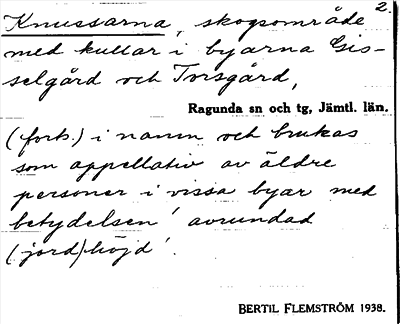 2.
Knussarna, skogsområde
med kullar i byarna Gis-
selgård och Torsgård,
Ragunda sn och tg, Jämtl. län.
(forts.) i namn och brukas
som appellativ av äldre
personer i vissa byar med
betydelsen 'avrundad
(jord)höjd'.
BERTIL FLEMSTRÖM 1938.